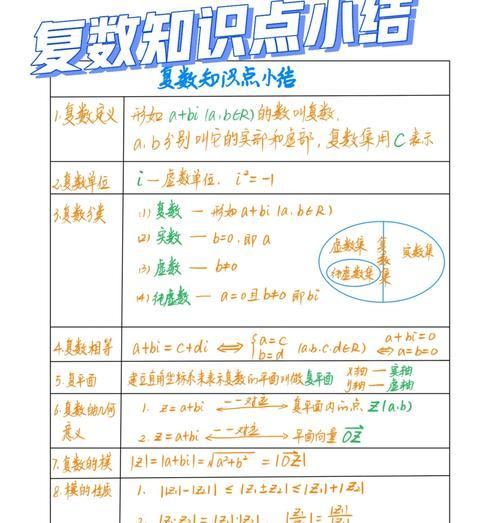 复数知识点小结
复数知识点小结
1.复数定义
形如 a+bi (a,b∈R) 的数叫复数.
a,b分别叫它的实部和虚部,复数集用C表示
2.复数单位
i — 虚数单位. i²=-1
3.复数分类
(1) 复数 — 形如 a+bi (a,b∈R)
(2) 实数 — b=0,即 a
(3) 虚数 — b≠0
(4) 纯虚数 — a=0且b≠0 即bi
虚数集
复数集
实数集
纯虚数集
4.复数相等
a+bi=c+di ⟺ {a=c b=d (a.b.c.d∈R) a+bi=0 ⟺ a=b=0
5.复平面
建立直角坐标系来表示复数的平面叫做复平面
x轴 — 实轴
y轴 — 虚轴
6.复数的几何意义
1. z=a+bi ⟷ 一一对应 复平面内的点 Z(a,b)
2. z=a+bi ⟷ 一一对应 平面向量 OZ
7.复数的模
|z|=|a+bi|=√a²+b² =|OZ|
8.模的性质
1. ||z₁|-|z₂|| ≤ |z₁±z₂| ≤ |z₁|+|z₂|
2. |z₁·z₂|=|z₁|·|z₂|. |z₁/z₂|=|z₁|/|z₂|